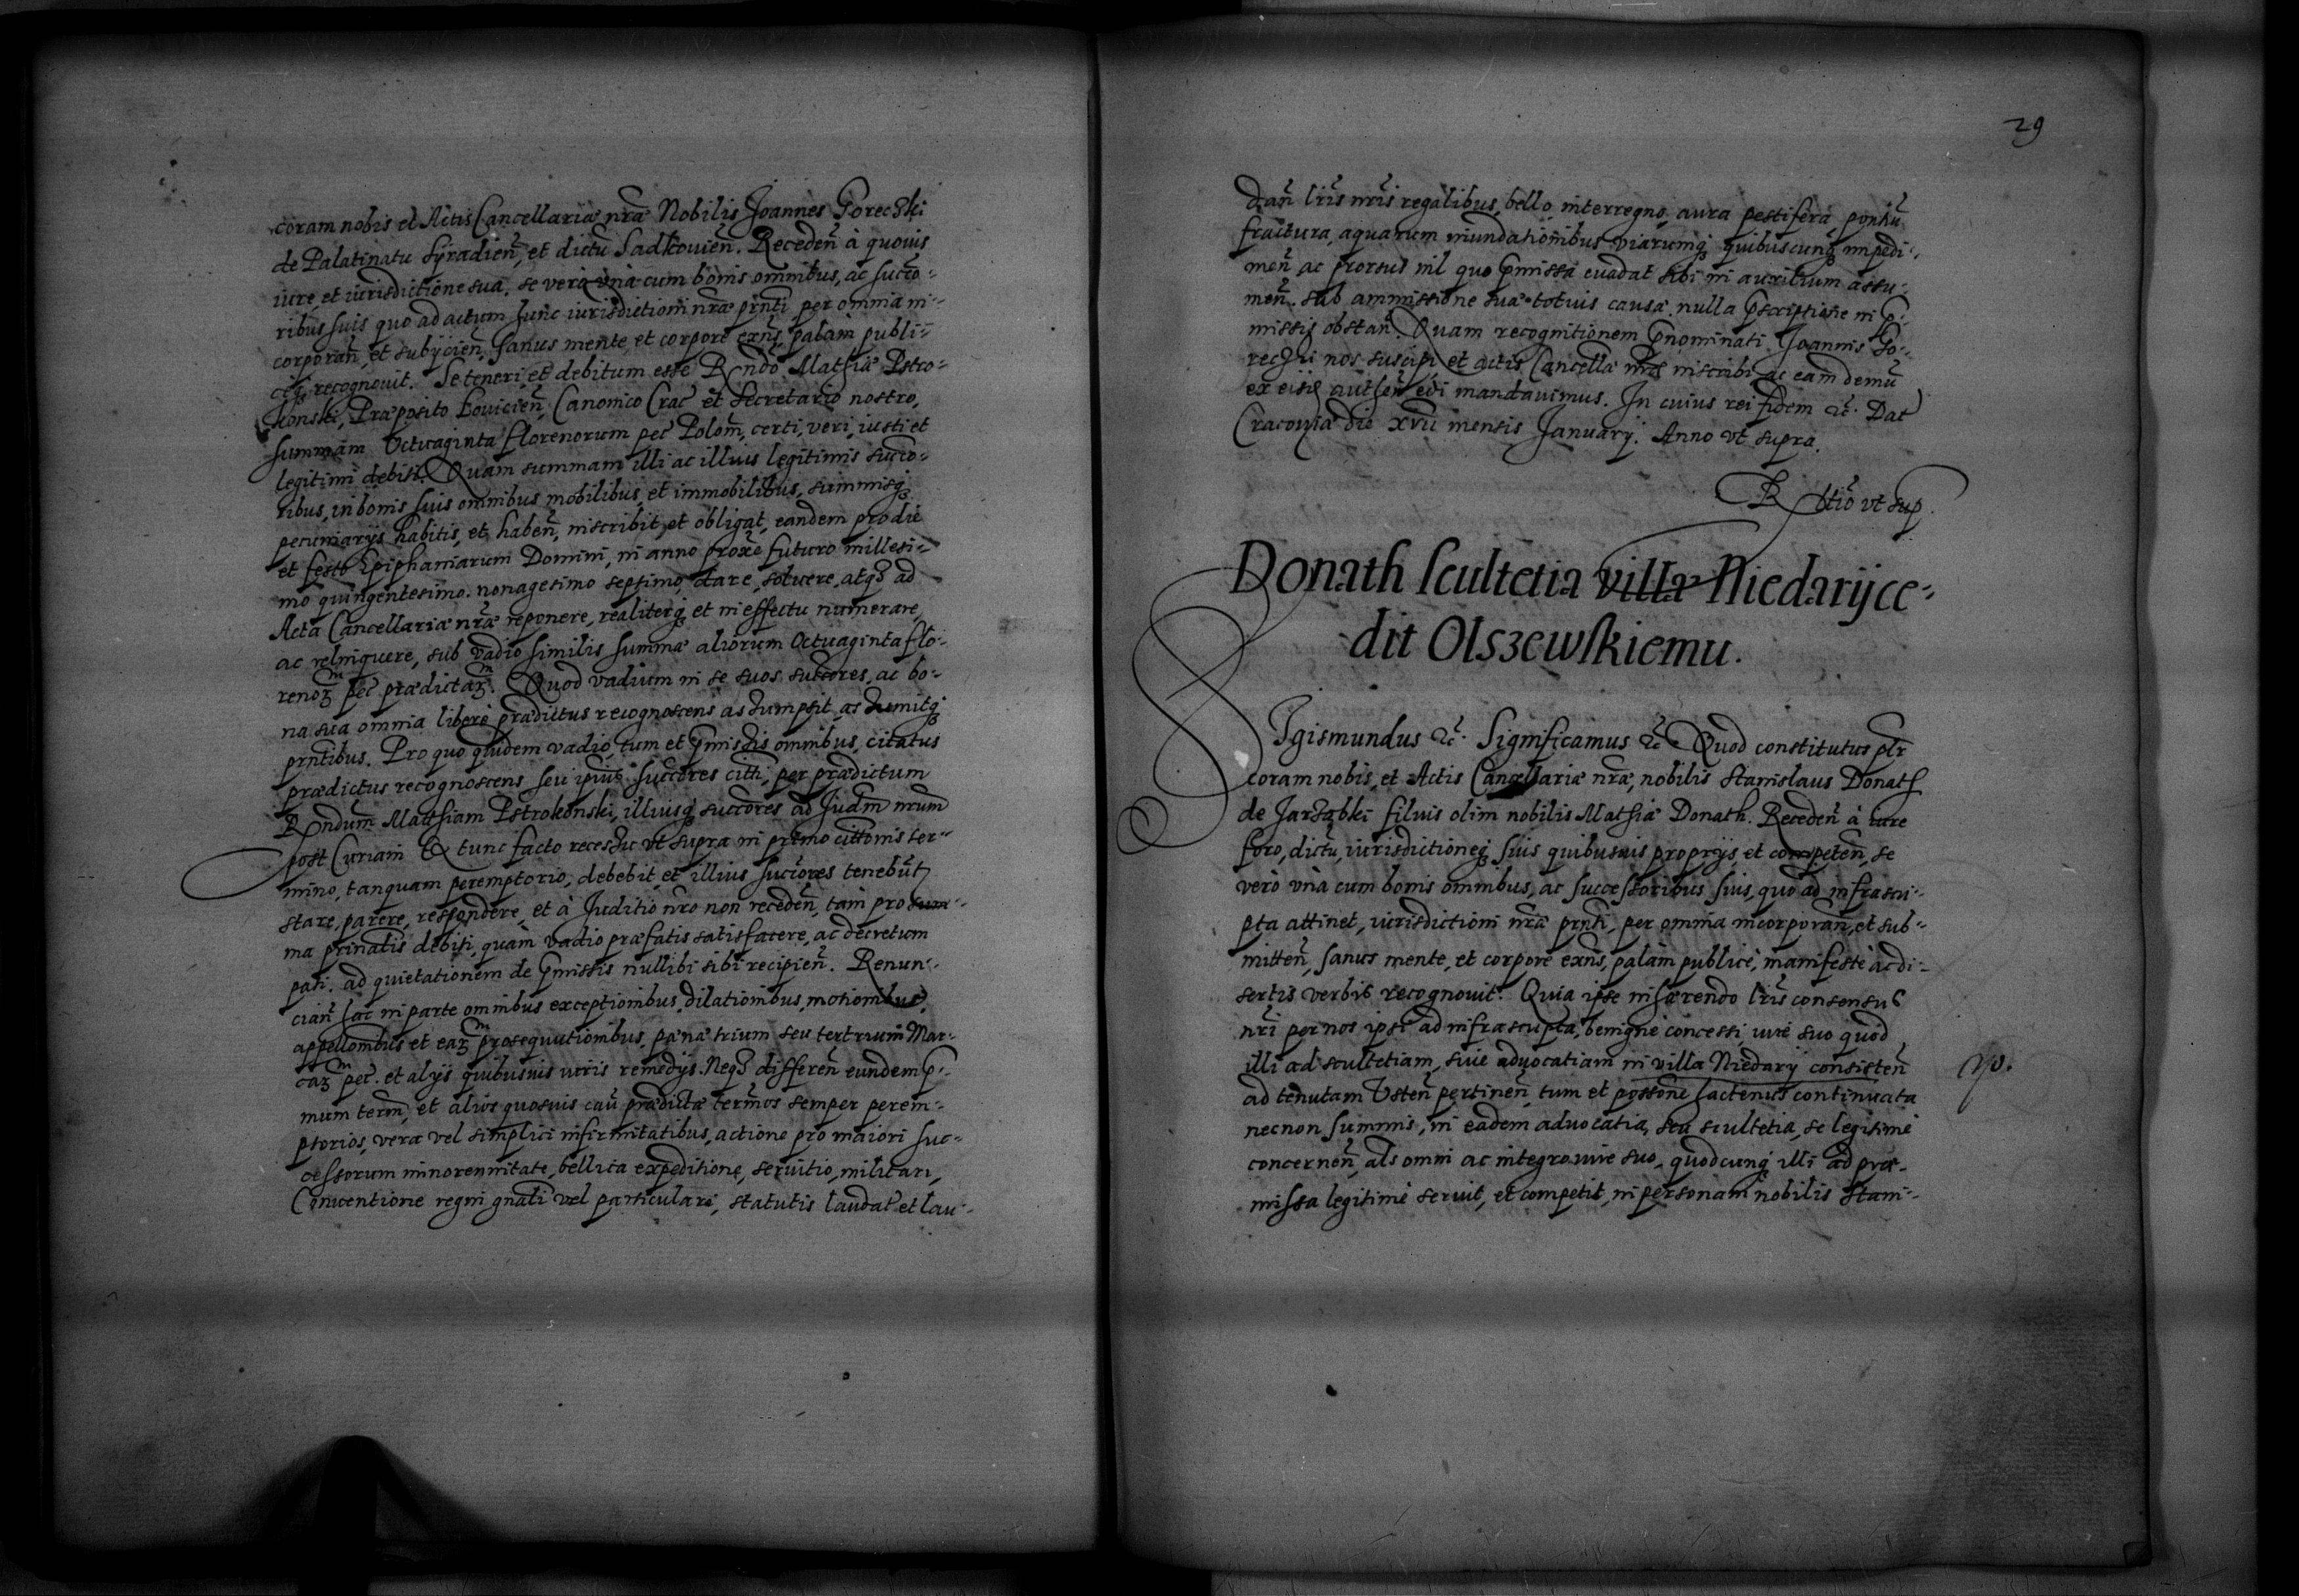 coram nobis et Actis Cancellariæ nr̃æ Nobilis Joannes Goreczki
de Palatinatu Syradieñ, et dictũ Sadkouień. Recedeñ à quouis
iure, et iurisdictione sua. se verò vnà cum bonis omnibus, ac succo-
ribus suis quo ad actum hunc iurisdictioni nr̃æ prñti per omnia in-
corporañ, et subijcieñ, sanus mente et corpore exñs, palàm publi-
ceq; recognouit. Se teneri et debitum esse Rñdo Mathiæ Pstro-
konski, Præposito Louicieñ, Canonico Crac̃ et Secretario nostro,
summam Octuaginta florenorum pec̃ Poloñ, certi, veri, iusti et
legitimi debiti. Quam summam illi ac illius legitimis succo-
ribus, in bonis suis omnibus mobilibus, et immobilibus, summisq;
pecuniarijs habitis, et habeñ, inscribit, et obligat, eandem pro die
et festo Epiphaniarum Domini, in anno proxè futuro millesi-
mo quingentesimo nonagesimo septimo, dare, soluere, atq; ad
Acta Cancellariæ nr̃æ reponere, realiterq; et in effectu numerare,
ac relinquere, sub vadio similis summæ aliorum Octuaginta flo-
renoꝝ pec̃ prædictaꝝ. Quod vadium in se suos succores, ac bo-
na sua omnia liberè prædictus recognoscens assumpsit, assumitq;
prñtibus. Pro quo quidem vadio, tum et p̃missis omnibus, citatus
prædictus recognoscens seu ipius succores citti, per prædictum
Rñdum Mathiam Pstrokonski, illiusq; succores ad Judm̃ nrũm
post Curiam Ex tunc facto recessu vt supra in primo cittionis ter-
mino, tanquam peremptorio, debebit, et illius succores tenebũt
stare, parere, respondere, et à Juditio nr̃o non recedeñ, tàm pro sum-
ma prinalis debiti, quàm vadio præfatis satisfacere, ac decretum
pati. ad quietationem de p̃missis nullibi sibi recipieñ. Renun-
ciañ hac in parte omnibus exceptionibus, dilationibus, motionibus,
appellombus et eaꝝ prosequutionibus, pænæ trium seu tertrium Mar-
caꝝ pec̃. et alijs quibusuis iuris remedijs. Neq; differeñ eundem p̃-
mum term̃, et alios quosuis cau᷉ prædictæ terminos semper perem-
ptorios, vera vel simplici infirmitatibus, actione pro maiori suc-
cessorum minorennitate, bellica expeditione, seruitio, militari,
Conuentione regni gnali vel particulari, statutis laudat̃ et lau-
29
dañ lr̃is nr̃is regalibus, bello, interregno, aura pestifera pontiũ
fractura, aquarum inundationibus viarumq; quibuscunq; impedi-
meñ ac prorsus nil quo p̃missa euadat sibi in auxilium assu-
meñ. sub ammissione suæ totius causæ, nulla p̃scriptione in p̃-
missis obstañ. Quam recognitionem p̃nominati Joannis Go-
reczki nos suscipi et actis Cancellæ nr̃æ inscribi ac eam demũ
ex eisd̃ autheñ edi mandauimus. In cuius rei fidem &c̃. Dat̃
Cracouiæ die xvij mensis January. Anno vt supra.
Rłtio vt sup.
Donath scultetia villæ Niedaryj ce-
dit Olszewskiemu.
SIgismundus &c̃. Significamus &c̃ Quod constitutus plr̃
coram nobis, et Actis Cancellariæ nr̃æ, nobilis Stanislaus Donath
de Jarząbki filius olim nobilis Mathiæ Donath. Recedeñ à iure
foro, dictũ, iurisdictioneq; suis quibusuis proprijs, et competeñ, se
verò vnà cum bonis omnibus, ac successoribus suis, quo ad infrascri-
pta attinet, iurisdictioni nr̃æ prñti, per omnia incorporañ, et sub-
mitteñ, sanus mente, et corpore exñs, palàm publicè, manifestè ac di-
sertis verbis recognouit. Quia ipse inhærendo lr̃is consensus
nr̃i per nos ipsi ad infrascripta, benignè concessi, iure suo quod
illi ad scultetiam, siue aduocatiam in villa Niedary consisteñ
yo.
ad tenutam Vsteñ pertineñ, tum et possõne hactenus continuata
necnon summis, in eadem aduocatia, seu scultetia, se legitimè
concerneñ, als omni ac integro iure suo, quodcunq; illi ad præ-
missa legitimè seruit, et competit, in personam nobilis Stani-